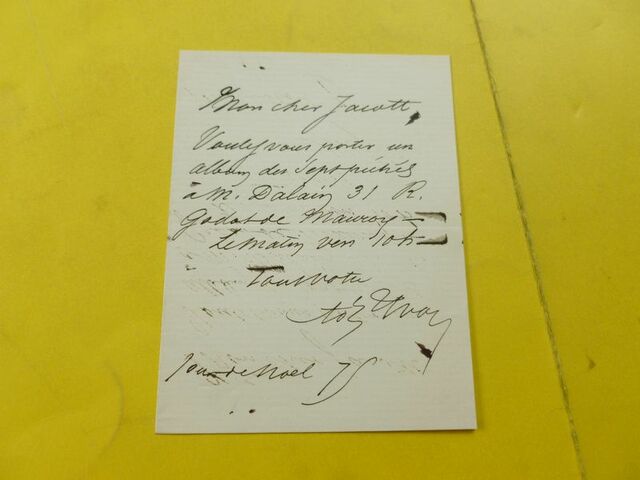 Mon cher Jacott
Voulez vous porter un
album des Sept péchés
à M. Dalain 31 R.
Godot de Mauroy –
le matin vers 10h
Tout votre
Ad Yvon
Jour de Noel 75